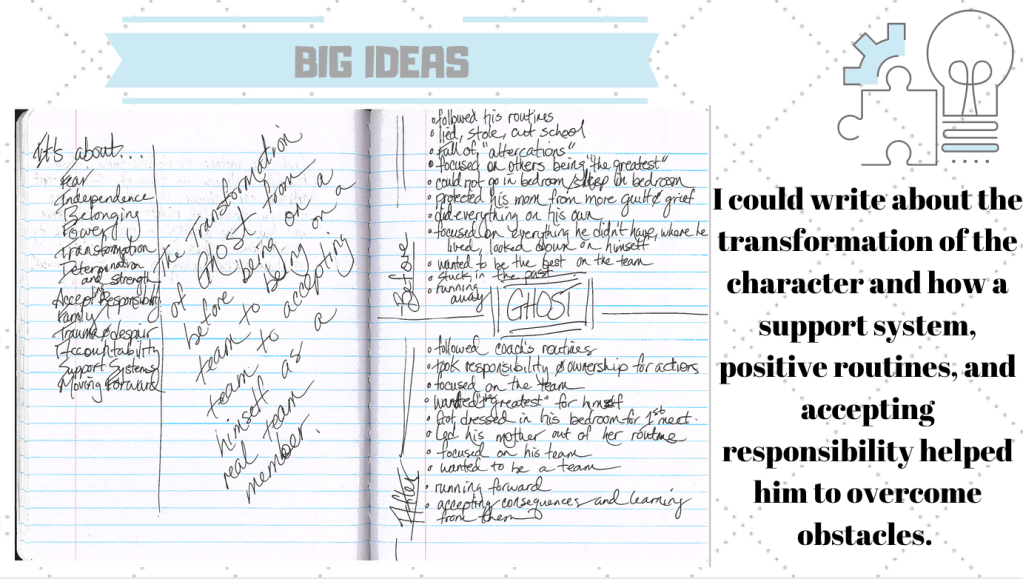 BIG IDEAS
It's about...
Fear
Independence
Belonging
Power
Transformation
Determination
and strength
Accept Responsibility
Family
Trauma & despair
Accountability
Support Systems
Moving Forward
The transformation
of Ghost from
before being on a
team to being on a
team to accepting
himself as a
real team
member.
Before
• followed his routines
• lied, stole, cut school
• full of "altercations"
• focused on others being "the greatest"
• could not go in bedroom/sleep in bedroom
• protected his mom from more guilt & grief
• did everything on his own
• focused on everything he didn't have, where he
lived, looked down on himself
• wanted to be the best on the team
• stuck in the past
• running
away
GHOST
After
• followed coach's routines
• took responsibility & ownership for actions
• focused on the team
• wanted "the greatest" for himself
• Got dressed in his bedroom for 1st meet
• Led his mother out of her routine
• focused on his team
• wanted to be a team
• running forward
• accepting consequences and learning
from them
I could write about the
transformation of the
character and how a
support system,
positive routines, and
accepting
responsibility helped
him to overcome
obstacles.